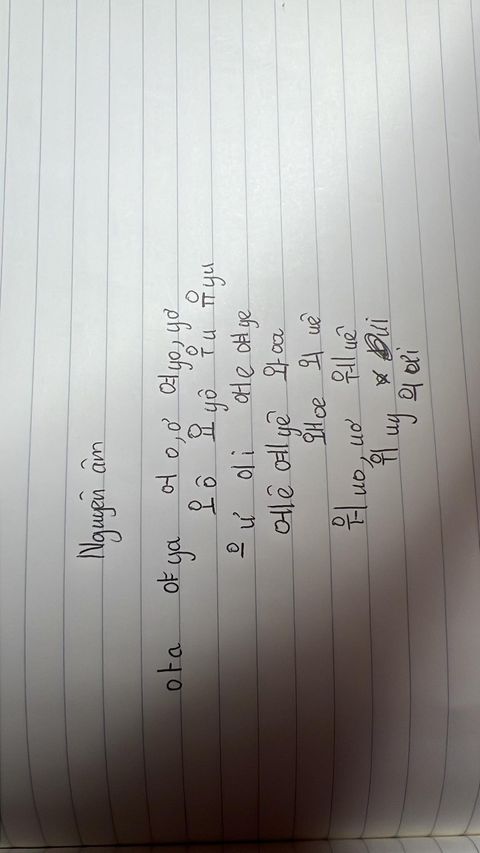 Nguyên âm
아 a 야 ya 어 o, ơ 여 yo, yơ
오 ô 요 yô 우 u 유 yu
으 ư 이 i 애 e 얘 ye
에 ê 예 yê 와 oa
왜 oe 외 uê
워 uo, uơ 웨 uê
위 uy ưi
의 ưi